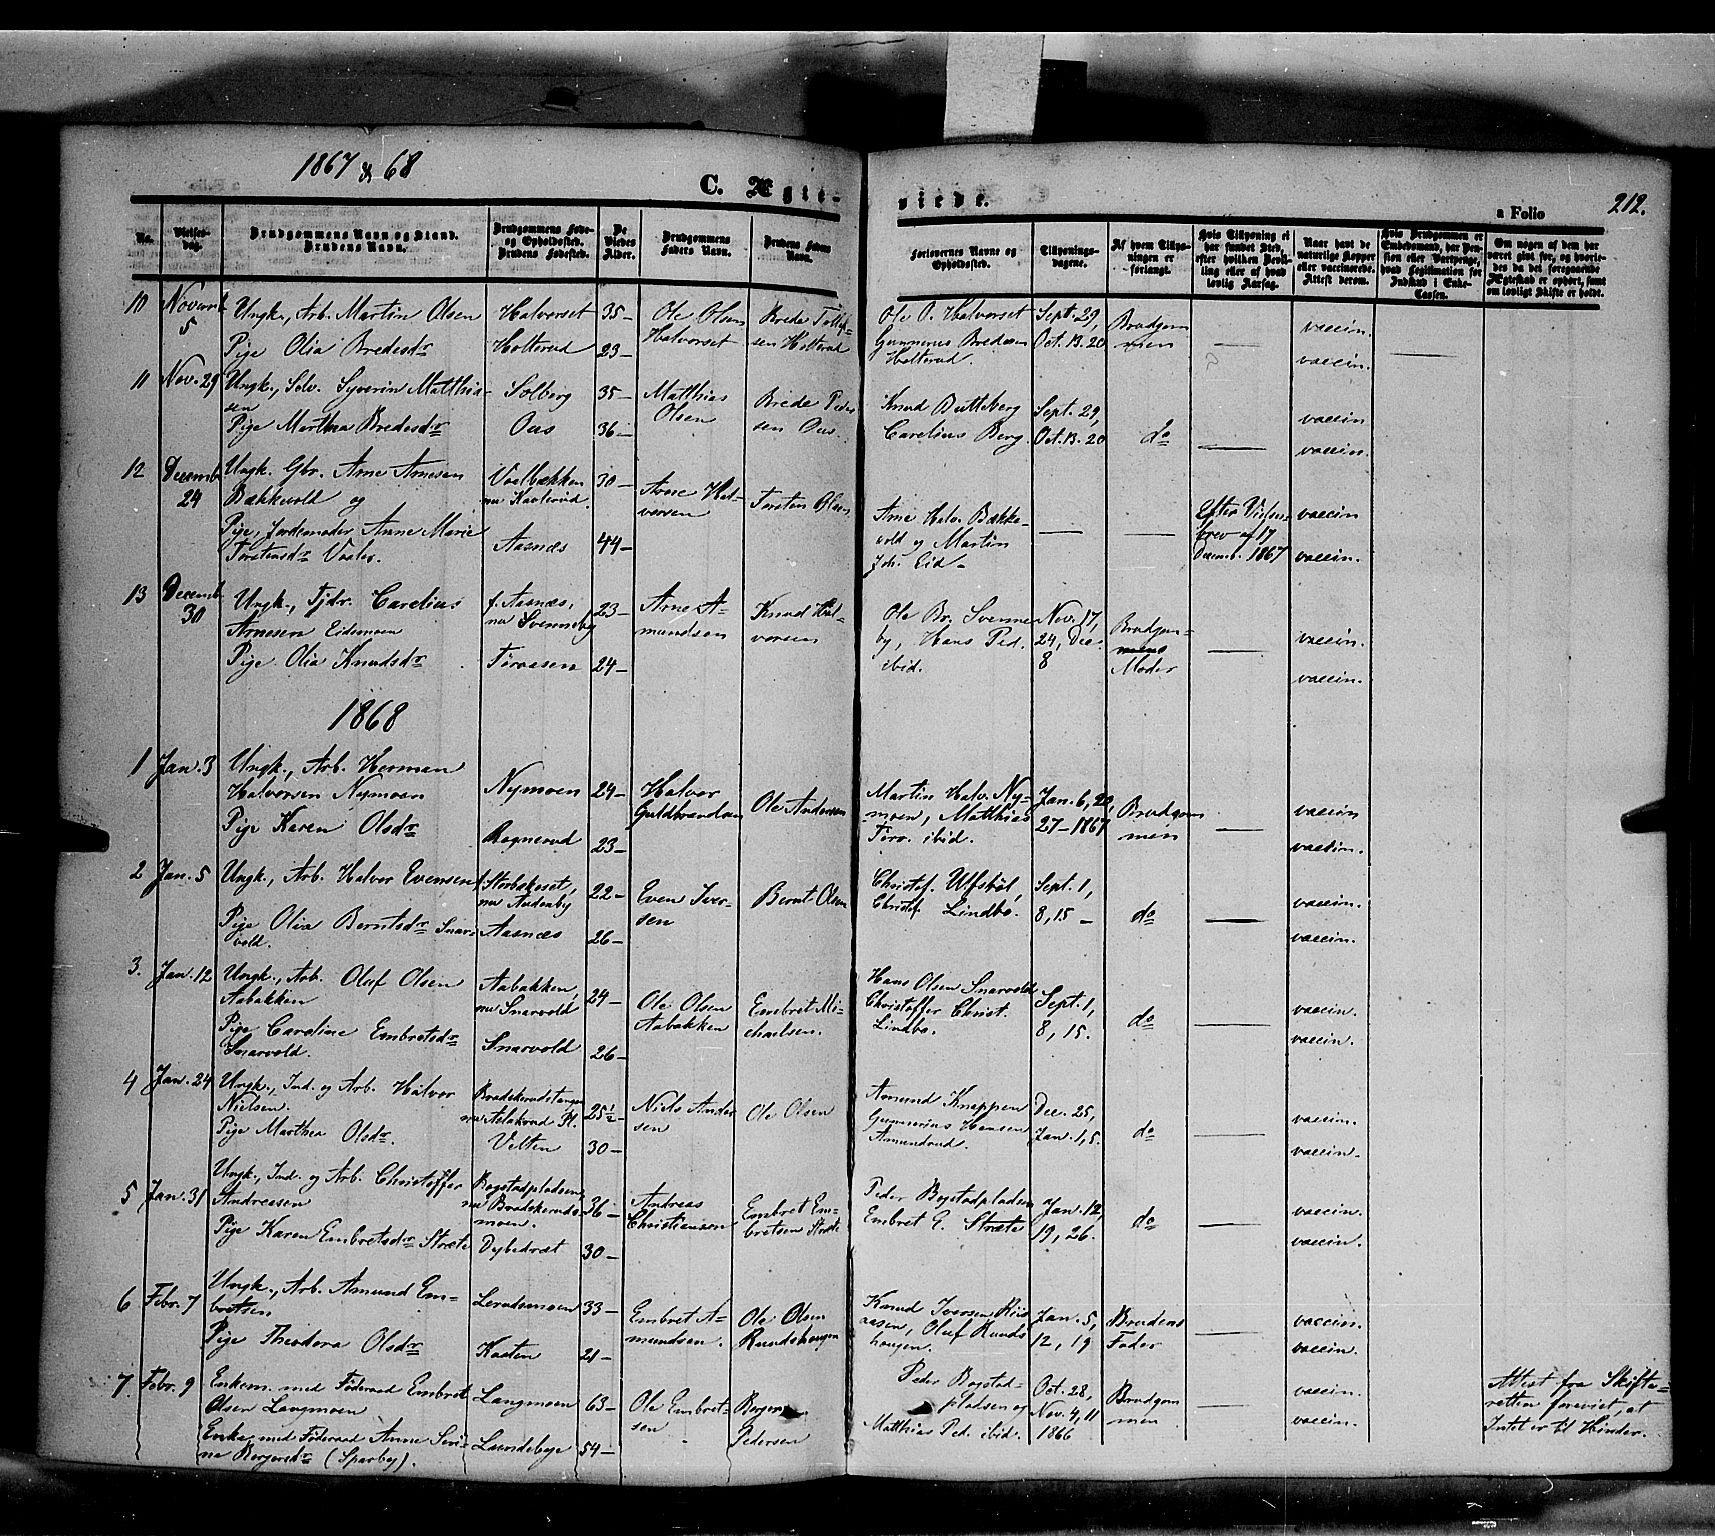 1867 & 68
C. Ægte-
viede.
a Folio 212.
No.
Vielses-dag.
Brudgommens Navn og Stand.
Brudens Navn.
Brudgommens Føde-
og Opholdssted.
Brudens Fødested.
De
Viedes
Alder.
Brudgommens
Faders Navn.
Brudens Faders
Navn.
Forlovernes Navne og
Opholdssted.
Tillysnings-
dagene.
Af hvem Tillys-
ningen er
forlangt.
Hvis Tillysning ei
har fundet Sted,
efter hvilken Bevil-
ling eller af hvad
lovlig Aarsag.
Naar havt de
naturlige Kopper
eller vaccinerede.
Attest derom.
Hvis Brudgommen er
Embedsmand, har Pen-
sion eller Vartpenge,
hvad Legitimation for
Indskud i Enke-
Cassen.
Om nogen af dem har
været givt før, og hvorle-
des da det foregaaende
Ægteskab er ophørt, samt
om lovligt Skifte er holdt.
10 Novemb. 5
Ungk., Arb. Martin Olsen
Pige Olia Bredesdr
Halvorset
Holterud
35 –
23 –
Ole Olsen
Halvorset
Brede Tollef-
sen Holterud
Ole O. Halvorset
Gunnerus Bredesen
Holterud.
Sept. 29,
Oct. 13. 20
Brudgom
men
vaccin.
vaccin.
11 Nov. 29
Ungk., Selv. Syverin Matthia-
sen
Pige Marthea Bredesdr
Solberg
Ous
35 –
36 –
Matthias
Olsen
Brede Peder
sen Ous.
Knud Butteberg
Carelius Berg.
Sept. 29,
Oct. 13. 20
do
vaccin
vaccin.
12 Decemb 24
Ungk. Gbr. Arne Arnesen
Bækkevold og
Pige, Jordemoder Anne Marie
Torstensdr Vaaler.
Vaalbækken
nu
Aasnæs
30 –
44 –
Arne Hal-
vorsen
Torsten Olsen
Arne Halv. Bække-
vold og Martin
Joh. Eid –
Efter Vielses-
brev af 17
Decemb. 1867
vaccin
vaccin.
13 Decemb 30
Ungk., Tjdr. Carelius
Arnesen Eidsmoen
Pige Olia Knudsdr
f. Aasnæs,
nu Svenneby
Toraasen
23 –
24 –
Arne A-
mundsen
Knud Hal-
vorsen
Ole Br. Svenne-
by, Hans Ped.
ibid.
Nov. 17,
24, Dec.
8
Brudgom-
mens
Moder
vaccin.
vaccin.
1868
1 Jan. 3
Ungk., Arb. Herman
Halvorsen Nymoen
Pige Karen Olsdr
Nymoen
Rognerud
24 –
23 –
Halvor
Guldbrandsen
Ole Andersen
Martin Halv. Ny-
moen, Matthias
Toro. ibid.
Jan. 6, 20,
27 – 1867
Brudgom
men
vaccin
vaccin.
2 Jan. 5
Ungk., Arb. Halvor Evensen
Pige Olia Berntsdr Snar-
vold.
Storbekeset,
nu Audenby
Aasnæs
22 –
26 –
Even Iver-
sen
Bernt Olsen
Christof. Ulfsböl,
Christof. Lindbö.
Sept. 1,
8, 15 –
do
vaccin.
vaccin.
3. Jan. 12
Ungk., Arb. Oluf Olsen
Aabakken
Pige Caroline Embretsdr
Snarvold.
Aabakken,
nu Snarvold
Snarvold
24 –
26 –
Ole Olsen
Aabakken
Embret Mi-
chaelsen.
Hans Olsen Snarvold
Christoffer Christ.
Lindbo.
Sept. 1,
8, 15.
do
vaccin.
vaccin.
4 Jan. 24
Ungk., Ind. og Arb. Halvor
Nielsen.
Pige Marthea Olsdr.
Bradskerudstangen
nu Aslakrud Pl.
Velten
25½ –
30 –
Niels Ander
sen
Ole Olsen
Amund Knappen
Gunnerius Hansen
Amundrud.
Dec. 25,
Jan. 1, 5.
do
vaccin.
vaccin.
5 Jan. 31
Ungk., Ind. og Arb. Christoffer
Andreasen
Pige Karen Embretsdr Stræte
Bogstadpladsen,
nu Bradskeruds-
moen.
Dybedræt
36 –
30 –
Andreas
Christiansen
Embret Em-
bretsen Stræte
Peder Bogstadpladsen
Embret E. Stræte
Jan. 12,
19, 26.
do
vaccin.
vaccin.
6 Febr. 7
Ungk., Arb. Amund Em-
bretsen
Pige Theodora Olsdr
Lerudsmoen
Kaaten
33 –
21 –
Embret A-
mundsen.
Ole Olsen
Rundshaugen
Knud Iversen Riis
aasen, Oluf Runds
haugen.
Jan. 5,
12, 19
Brudens
Fader
vaccin.
vaccin.
7. Febr. 9
Enkem. med Føderaad Embret
Olsen Langmoen
Enke med Føderaad Anne Seri-
ne Borgersdr (Sparby).
Langmoen
Lundebye
63 –
54 –
Ole Embret-
sen
Borger
Pedersen
Peder Bogstad-
pladsen og
Matthias Ped. ibid.
Oct. 28,
Nov. 4, 11
1866
Brudgom
men
vaccin.
vaccin.
Attest fra Skifte-
retten foreviist, at
Intet er til Hinder.